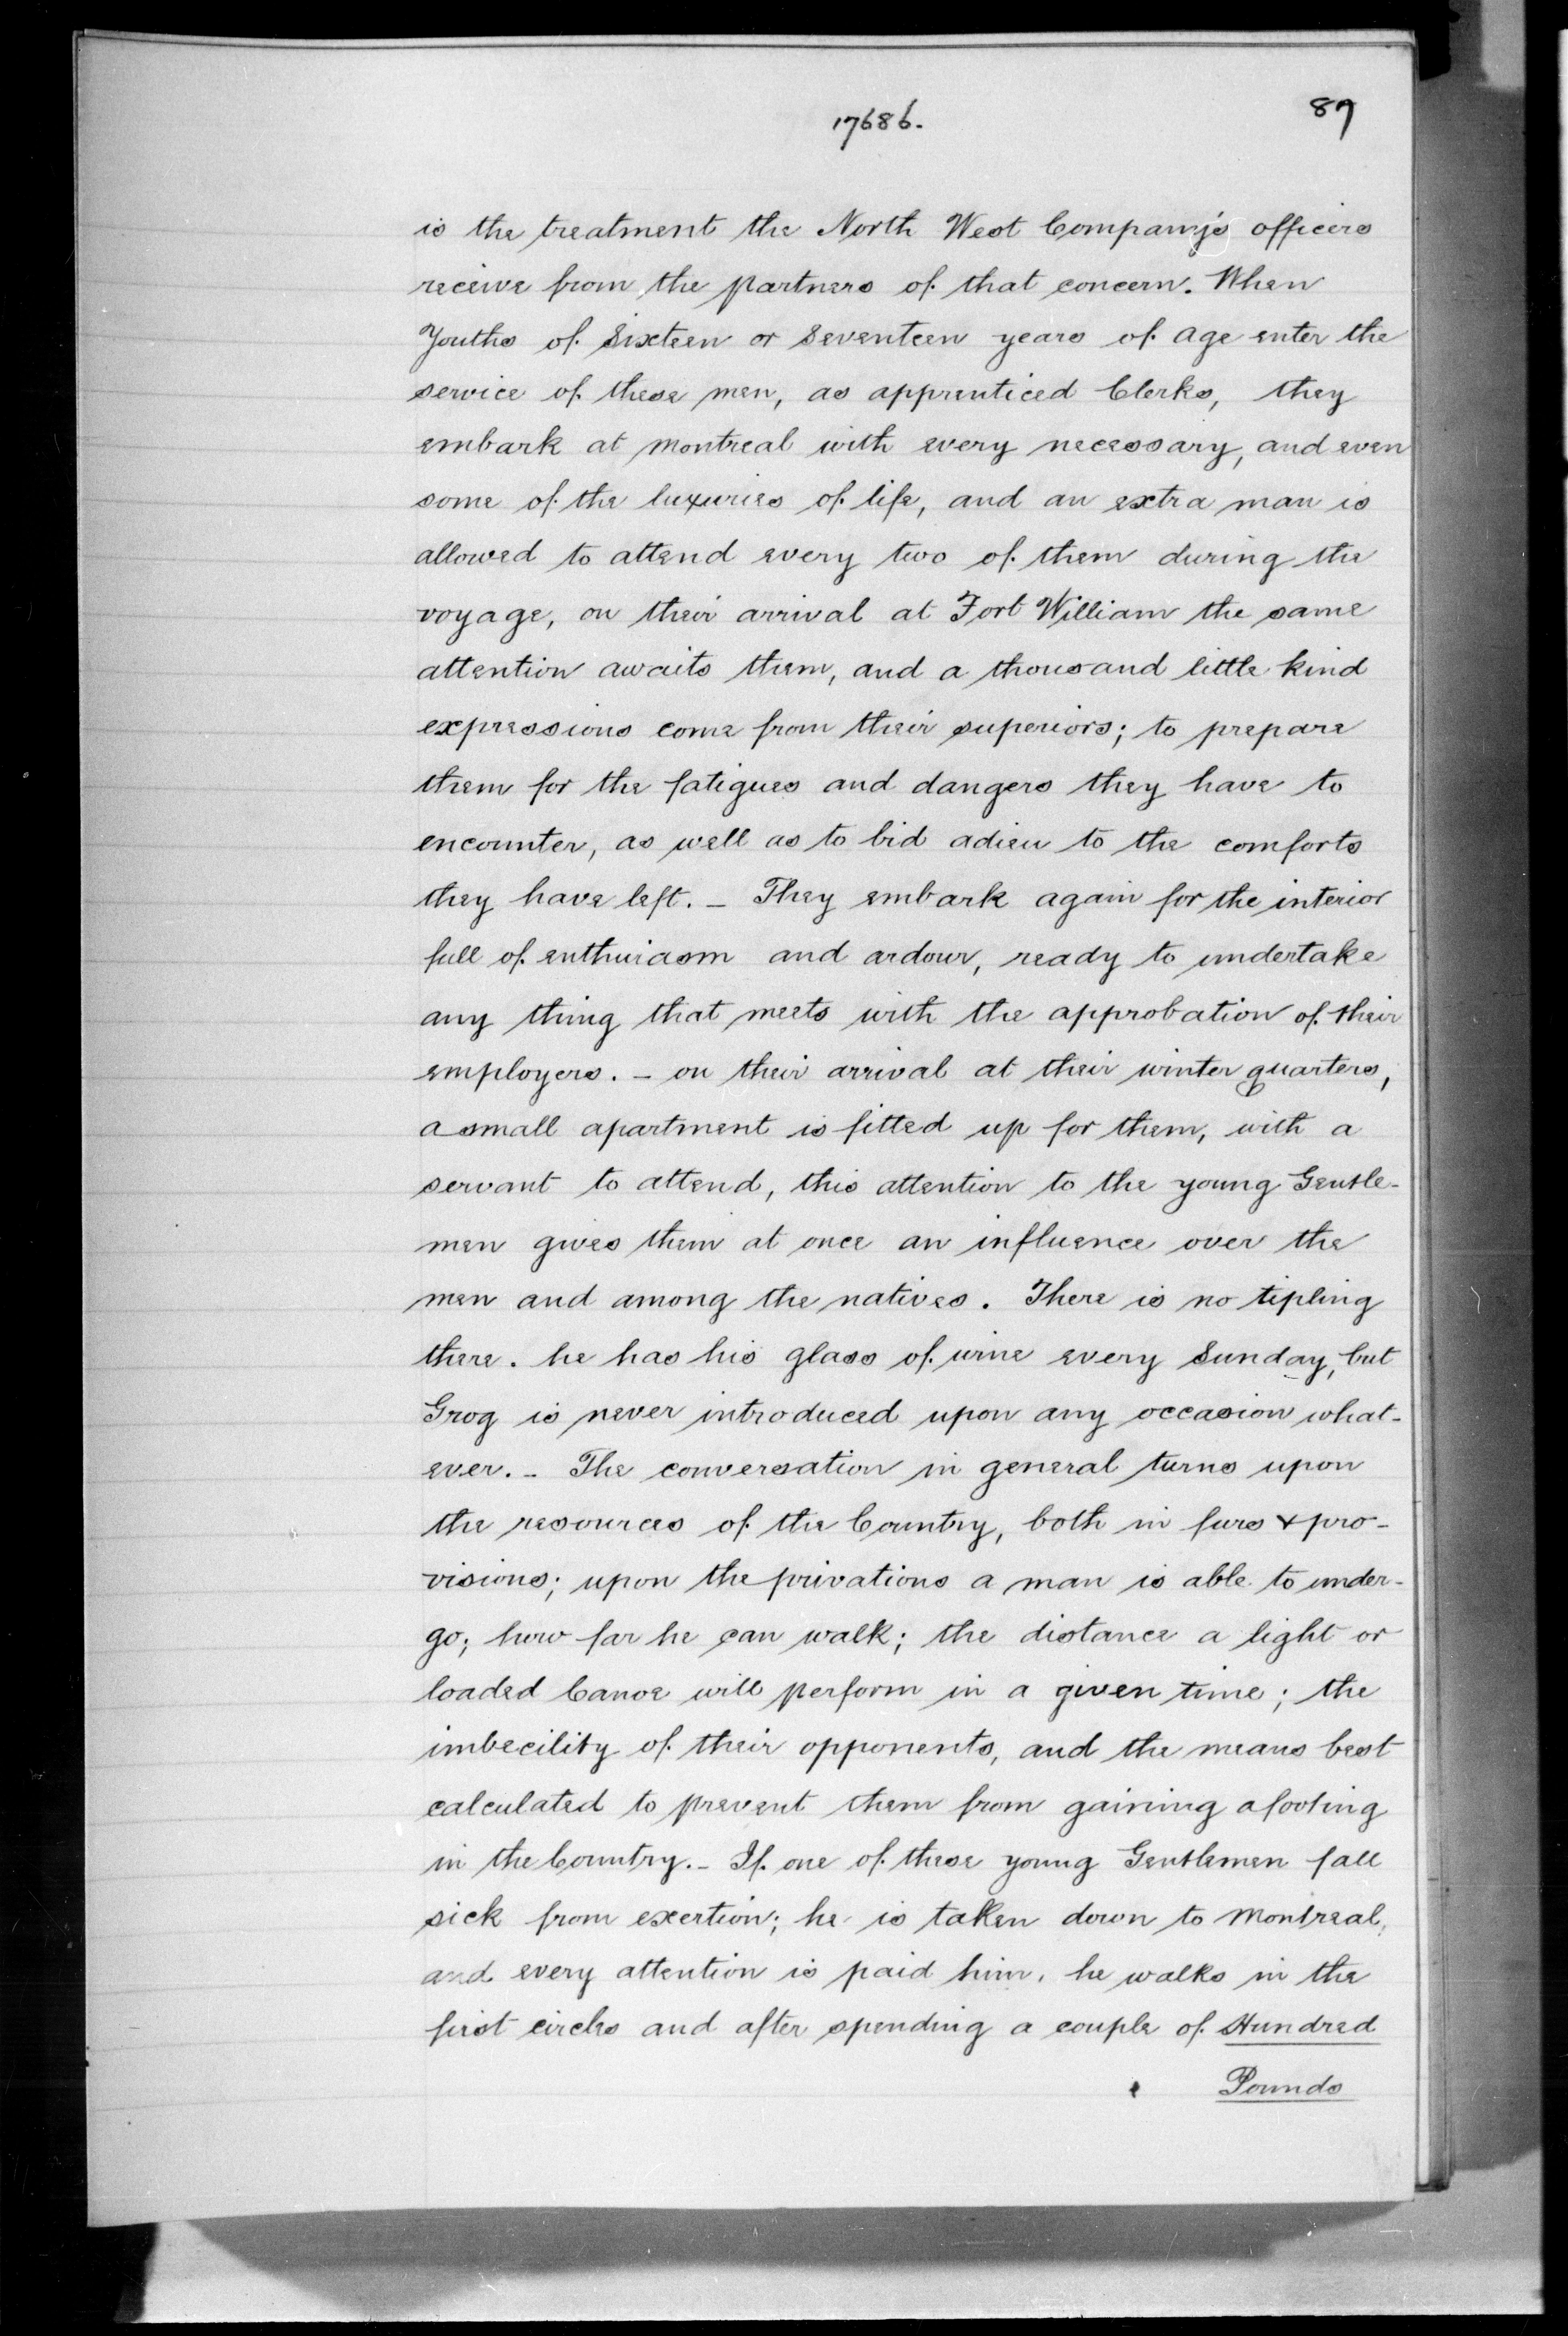 17686.
89
is the treatment the North West Company's officers
receive from the partners of that concern. When
Youths of Sixteen or Seventeen years of age enter the
service of these men, as apprenticed Clerks, they
embark at Montreal with every necessary, and even
some of the luxuries of life, and an extra man is
allowed to attend every two of them during the
voyage, on their arrival at Fort William the same
attention awaits them, and a thousand little kind
expressions come from their superiors; to prepare
them for the fatigues and dangers they have to
encounter, as well as to bid adieu to the comforts
they have left. _ They embark again for the interior
full of enthuiasm and ardour, ready to undertake
any thing that meets with the approbation of their
employers. _ on their arrival at their winter quarters,
a small apartment is fitted up for them, with a
servant to attend, this attention to the young Gentle-
men gives them at once an influence over the
men and among the natives. There is no tipling
there. he has his glass of wine every Sunday, but
Grog is never introduced upon any occasion what-
ever. _ The conversation in general turns upon
the resources of the Country, both in furs & pro-
visions; upon the privations a man is able to under-
go; how far he can walk; the distance a light or
loaded Canoe will perform in a given time; the
imbecility of their opponents, and the means best
calculated to prevent them from gaining a footing
in the Country. _ If one of these young Gentlemen fall
sick from exertion; he is taken down to Montreal,
and every attention is paid him, he walks in the
first circles and after spending a couple of Hundred
Pounds